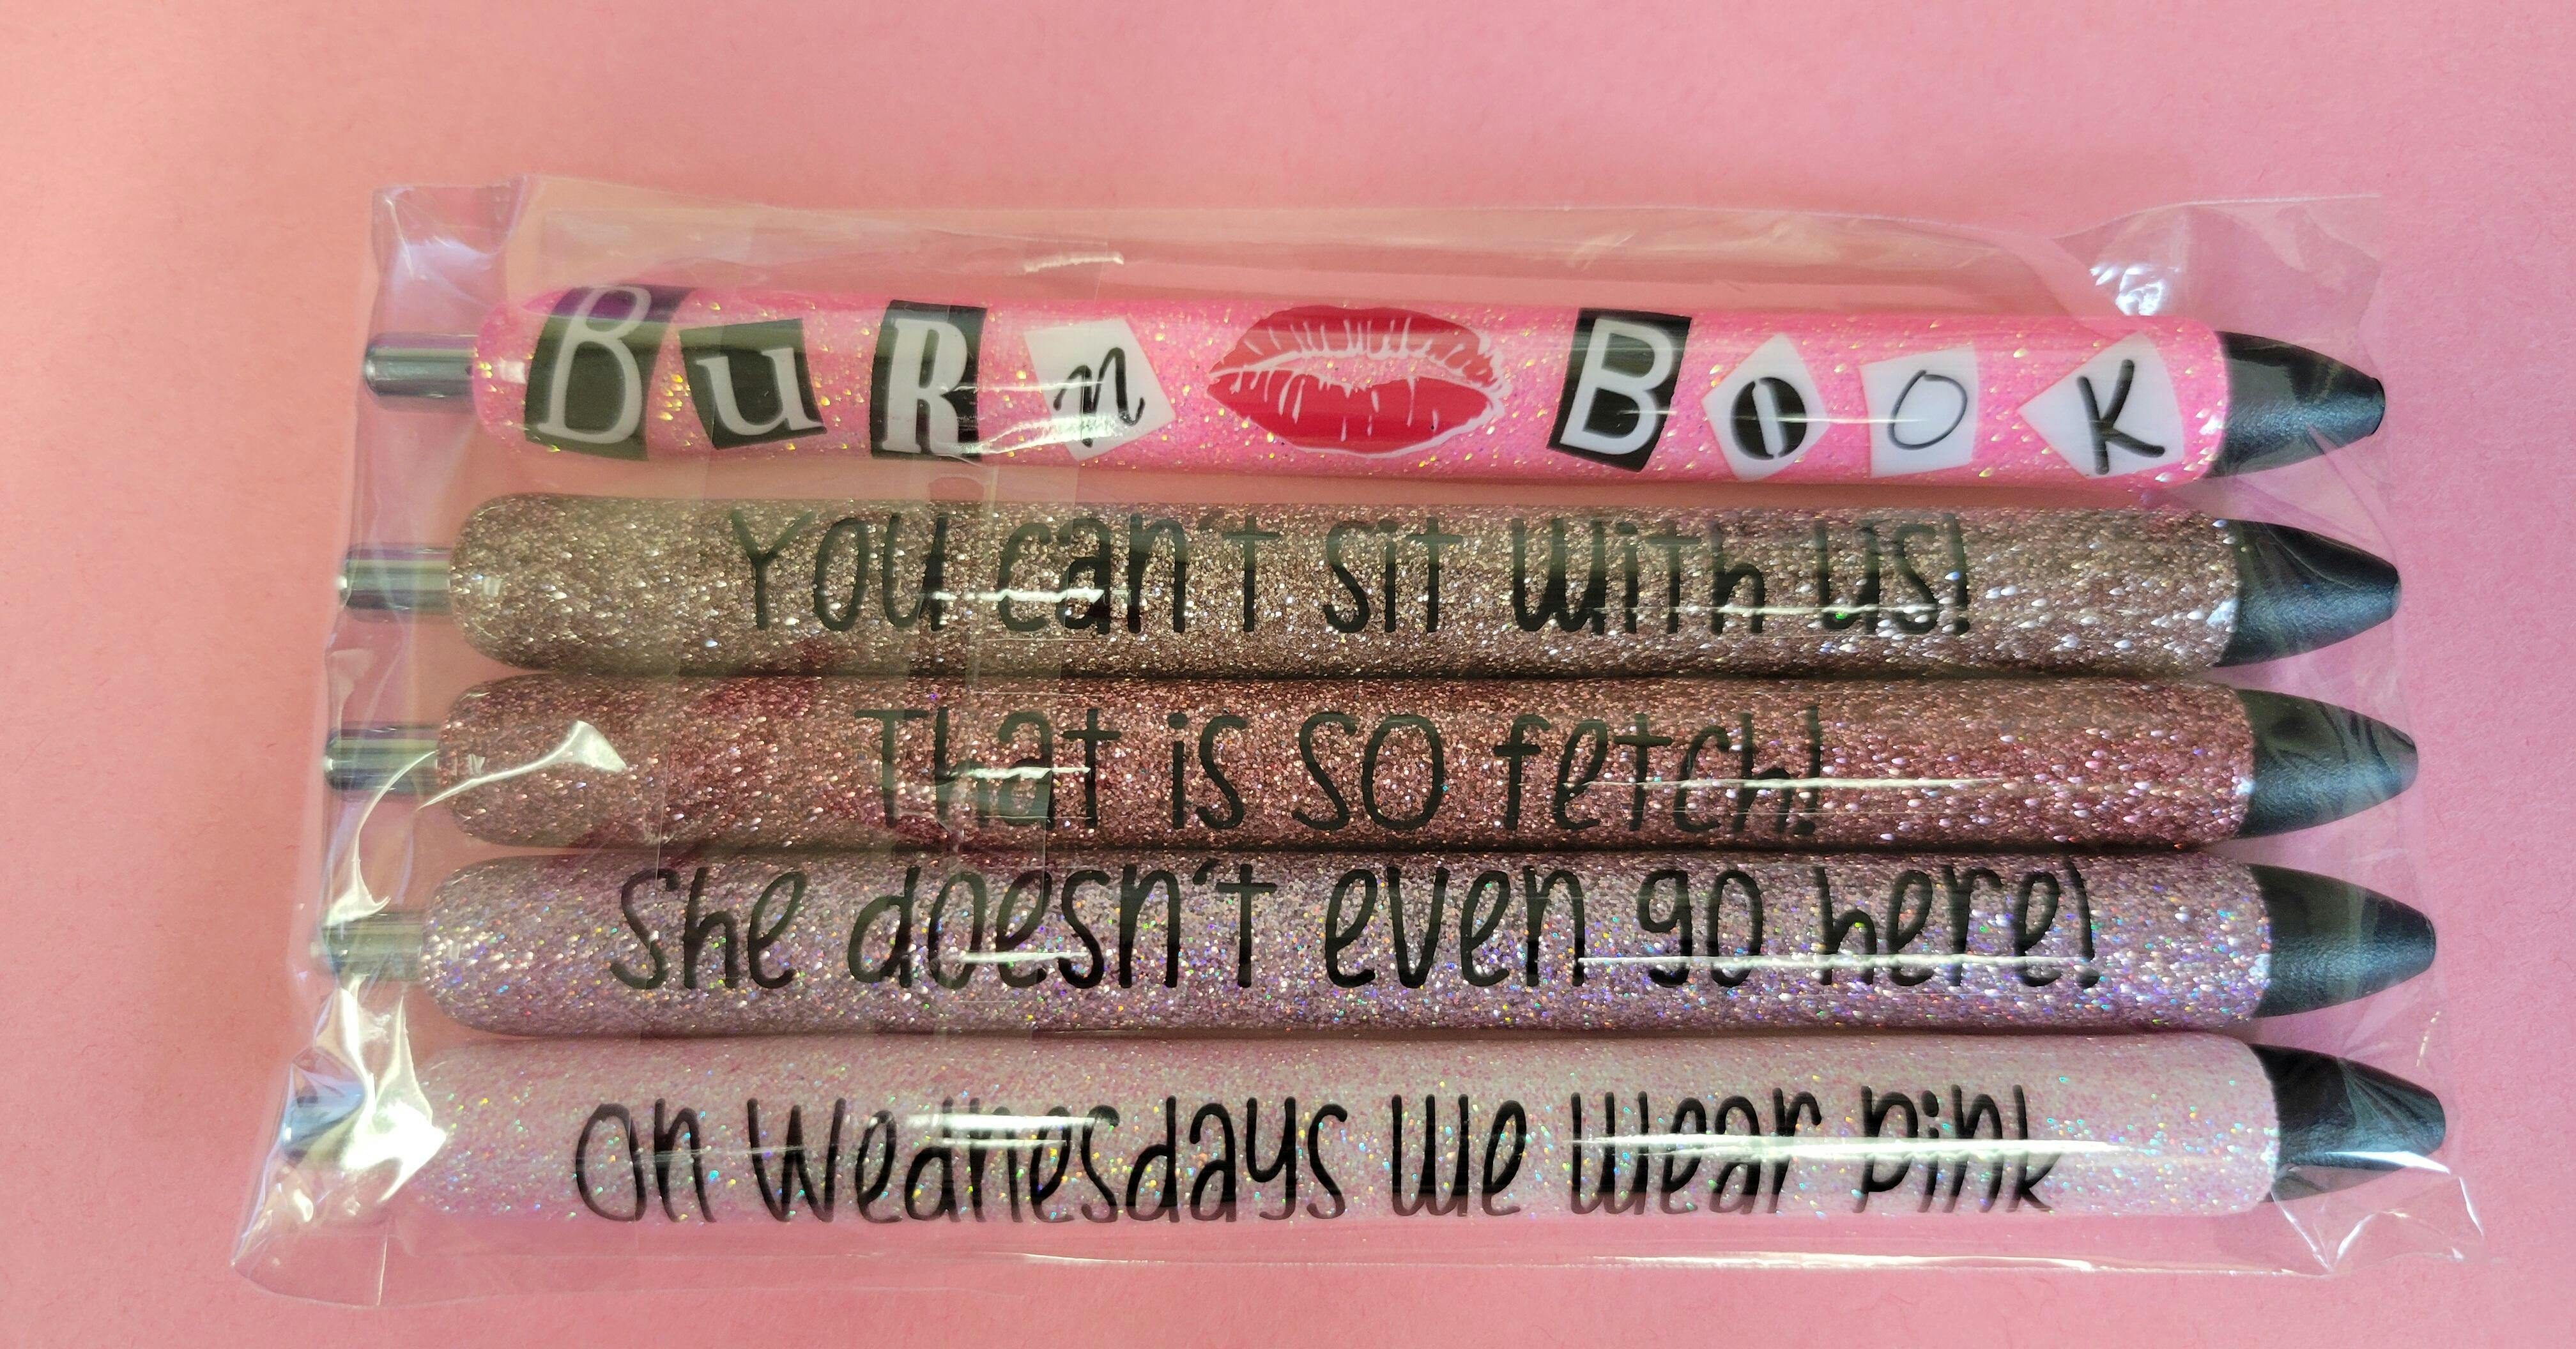 BuRn BOOK
You can't sit with us!
That is SO fetch!
She doesn't even go here!
On Wednesdays we wear pink